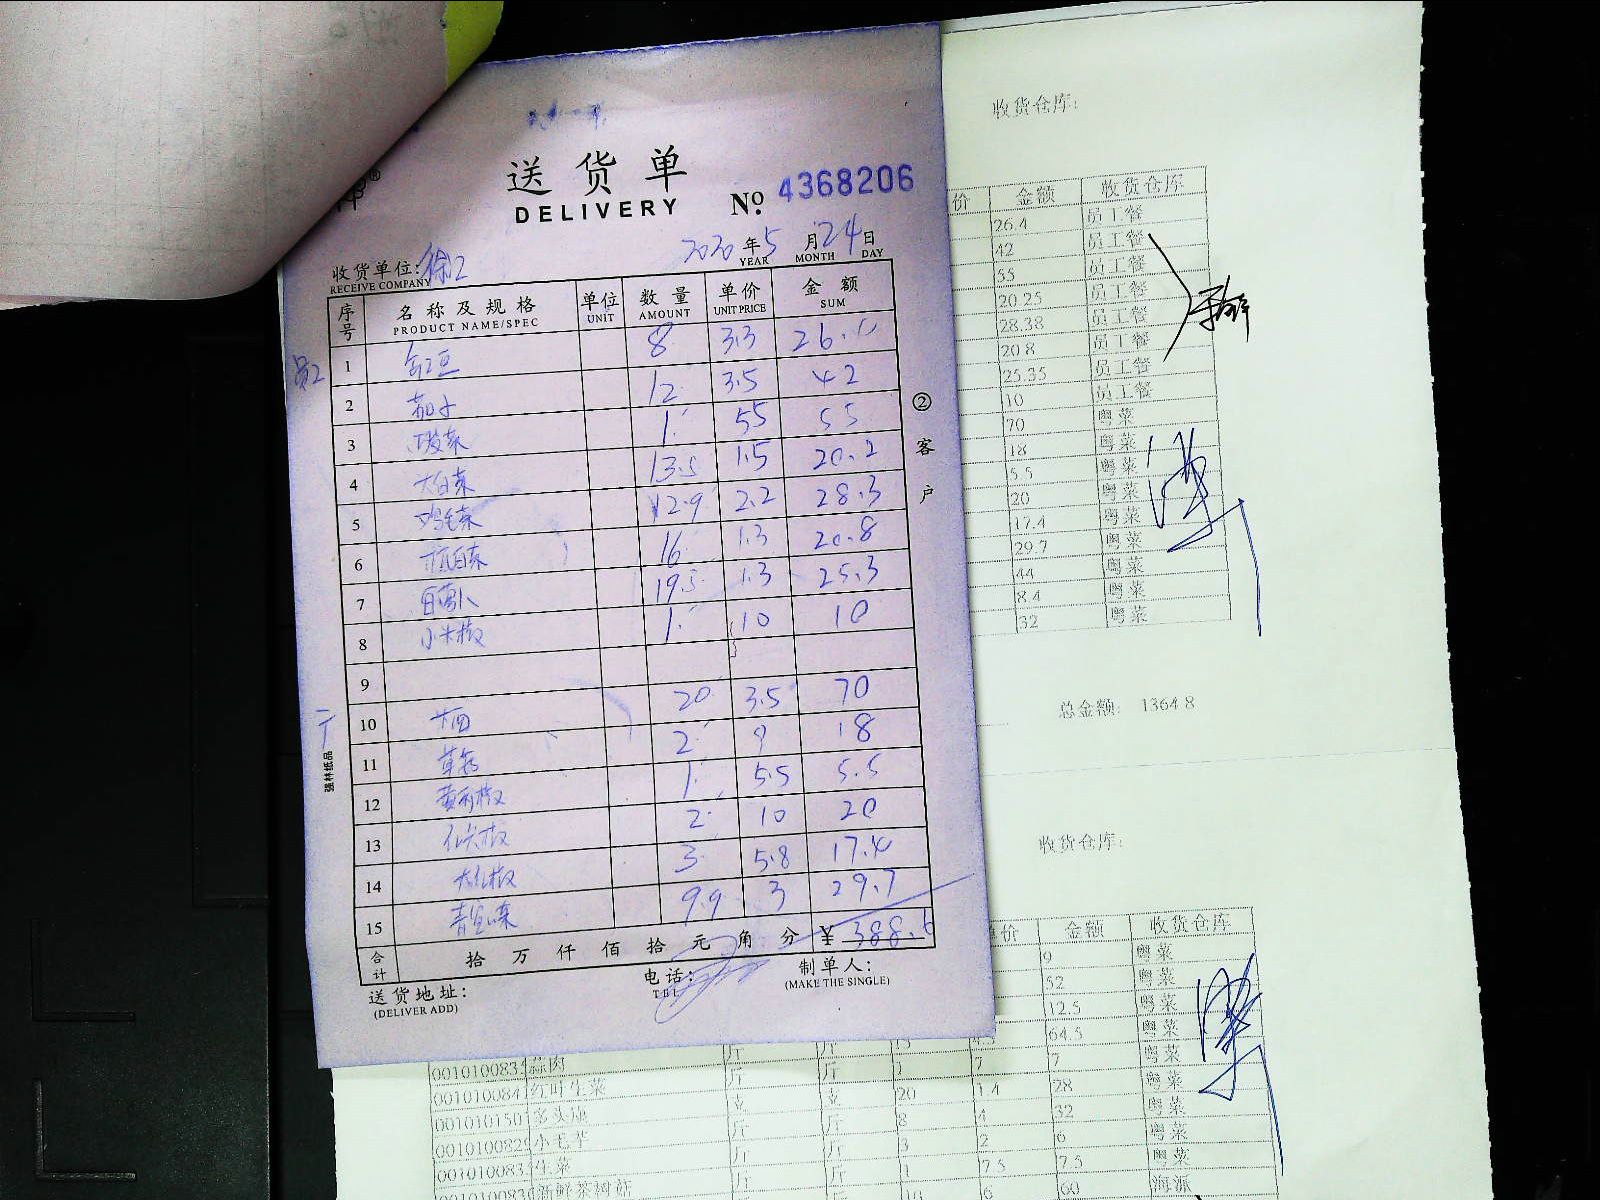 送货单
DELIVERY
No. 4368206
2020年5月24日
YEAR MONTH DAY
收货单位:
RECEIVE COMPANY
序号 名称及规格 单位 数量 单价 金额
PRODUCT NAME/SPEC UNIT AMOUNT UNIT PRICE SUM
1 豇豆 8 3.3 26.
2 茄子 12 3.5 42
3 1 55 55
4 大白菜 13.5 1.5 20.2
5 鸡毛菜 12.9 2.2 28.3
6 杭白菜 16 1.3 20.8
7 白萝卜 19.5 1.3 25.3
8 小米椒 1 10 10
9
10 20 3.5 70
11 2 9 18
12 1 5.5 5.5
13 2 10 20
14 3 5.8 17.4
15 9.9 3 29.7
合计 拾万仟佰拾元角分 ¥ 388.
送货地址:
(DELIVER ADD)
电话:
TEL
制单人:
(MAKE THE SINGLE)
②客户
强林纸品
收货仓库:
价 金额 收货仓库
26.4 员工餐
42 员工餐
55 员工餐
20.25 员工餐
28.38 员工餐
20.8 员工餐
25.35 员工餐
10 员工餐
70 粤菜
18 粤菜
5.5 粤菜
20 粤菜
17.4 粤菜
29.7 粤菜
44 粤菜
8.4 粤菜
32 粤菜
总金额: 1364.8
收货仓库:
单价 金额 收货仓库
9 粤菜
52 粤菜
12.5 粤菜
64.5 粤菜
001010083 蒜肉 斤 斤 1 7 7 粤菜
001010084 红叶生菜 斤 斤 20 1.4 28 粤菜
001010150 多头 支 支 8 4 32 粤菜
001010082 小毛芋 斤 斤 3 2 6 粤菜
001010083 生菜 斤 斤 1 7.5 7.5 粤菜
001010083 新鲜茶树菇 斤 斤 10 6 60 海派